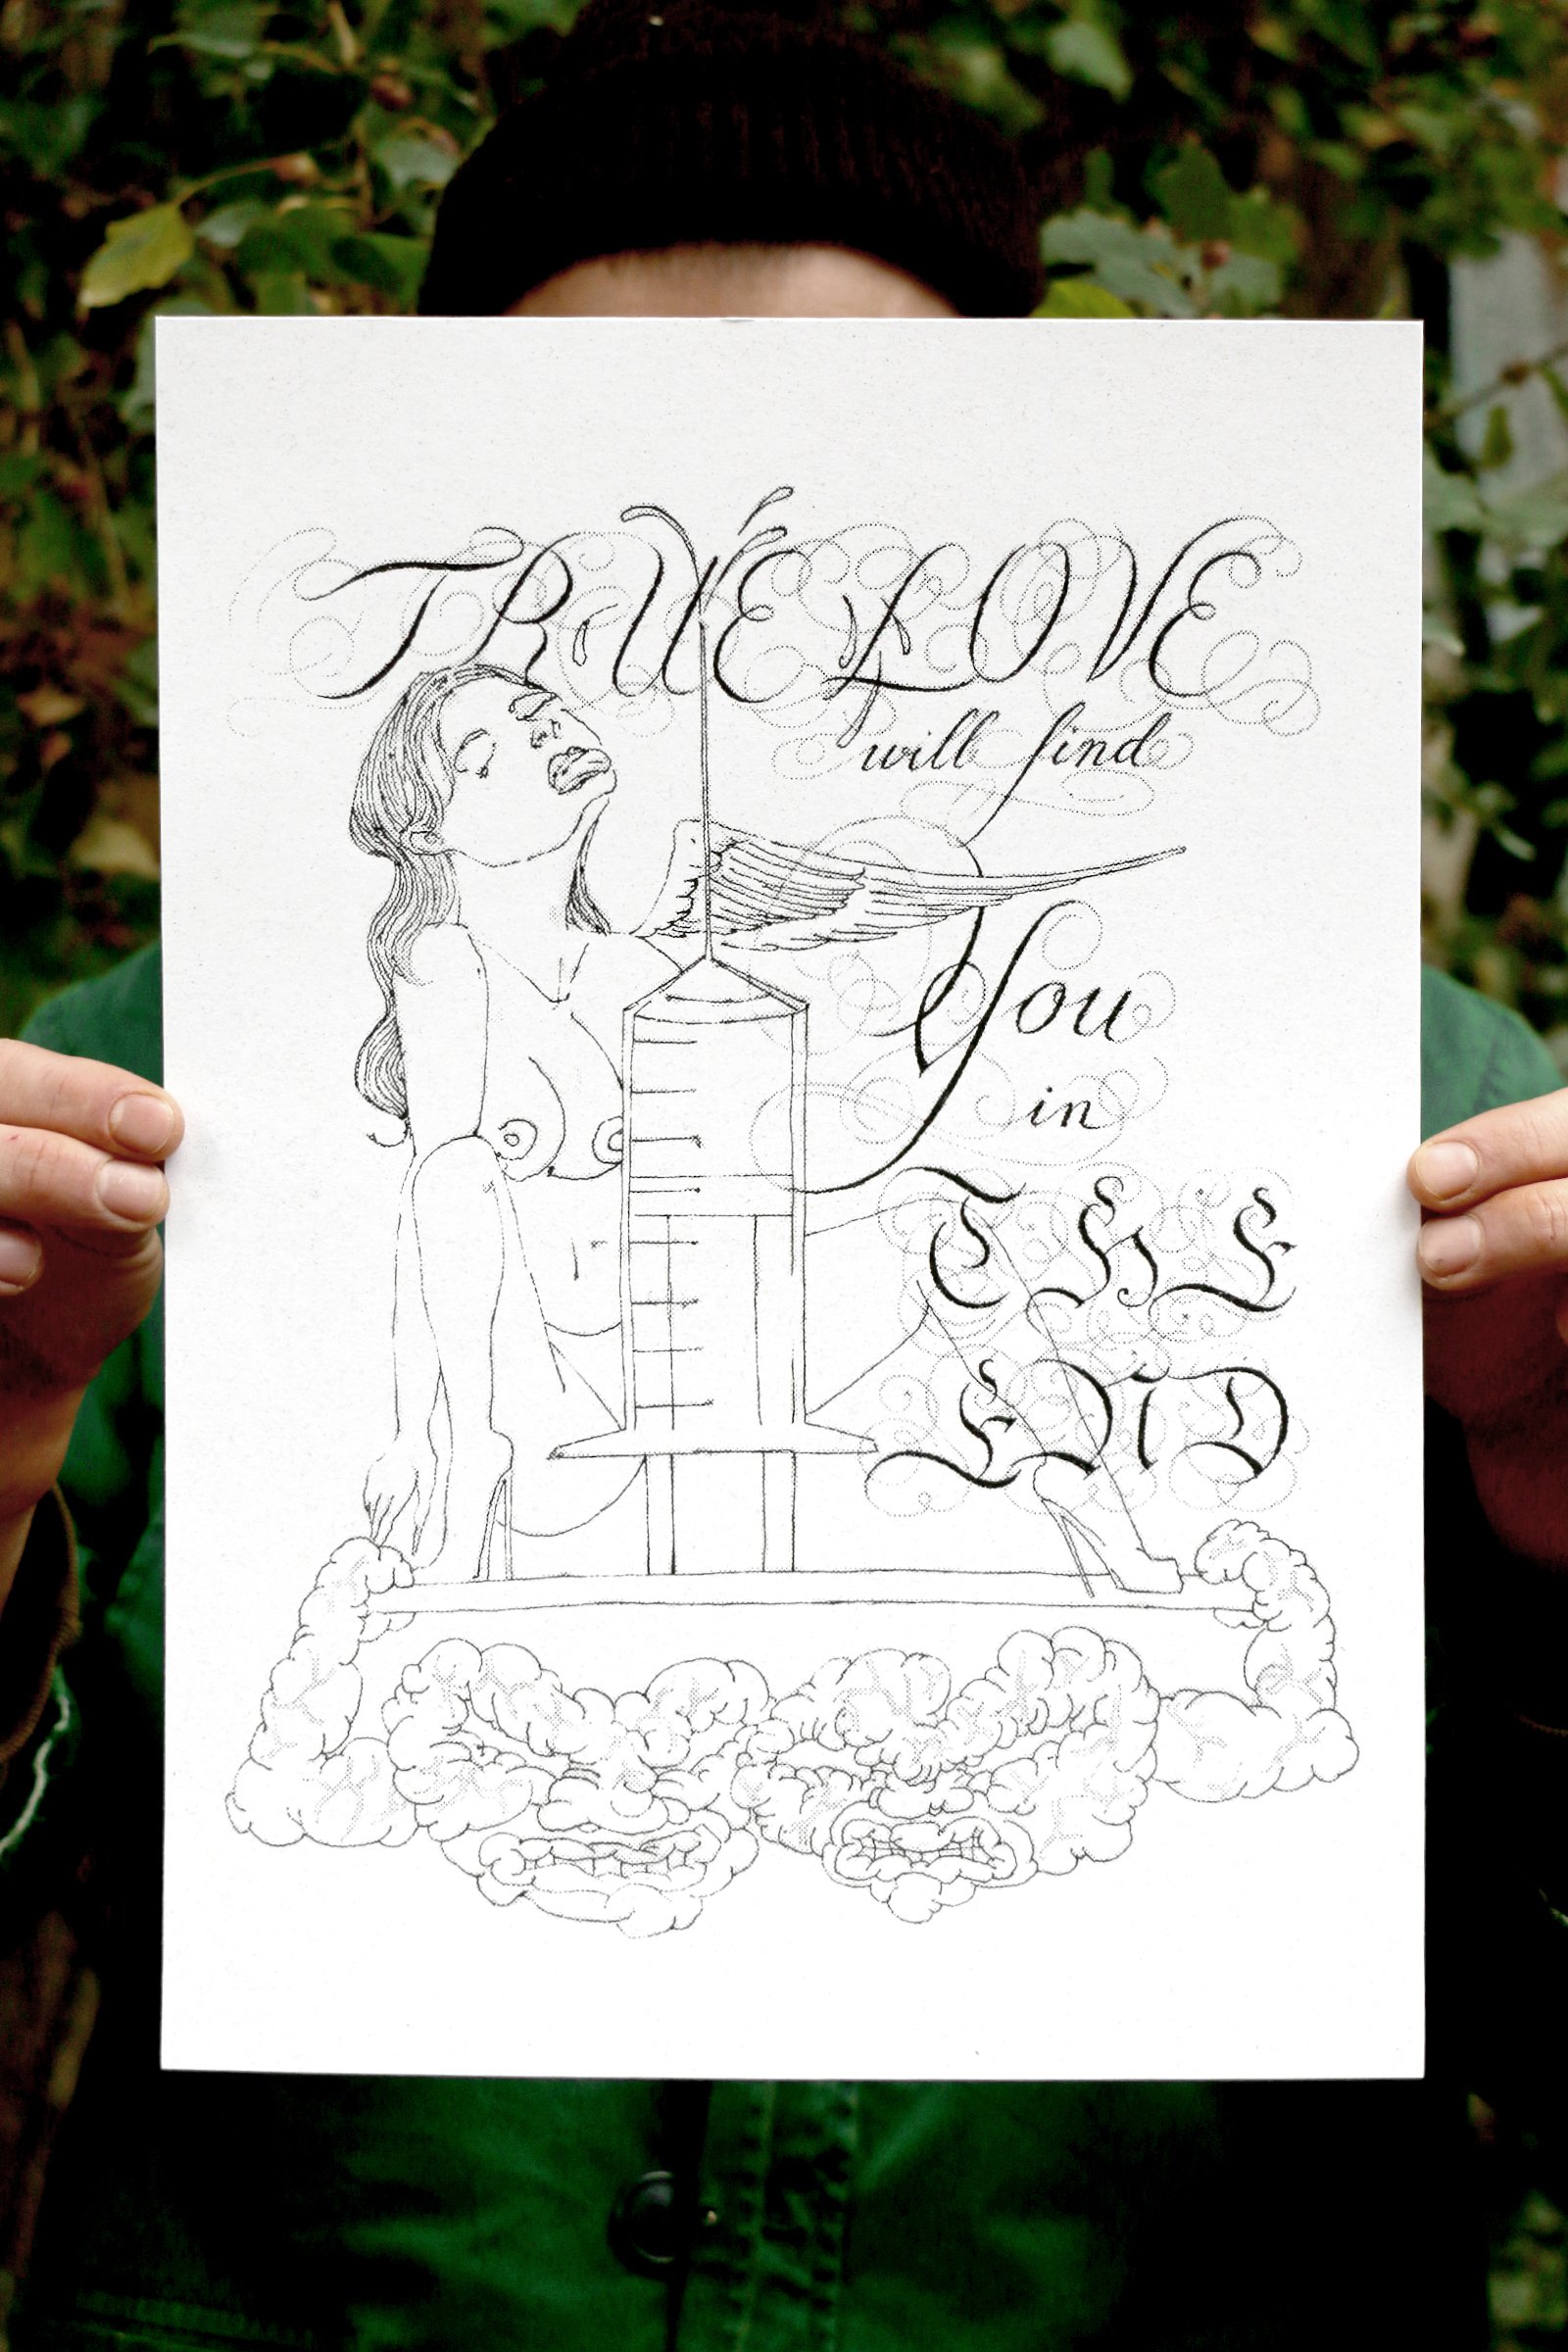 TRUE LOVE
will find
You
in
THE
END